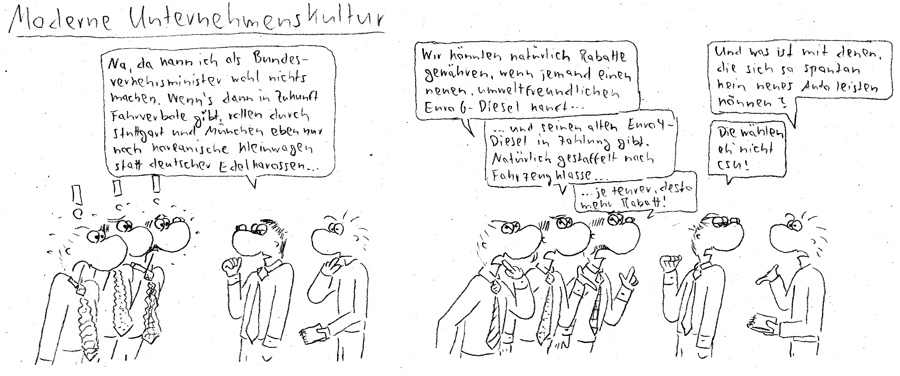 Moderne Unternehmenskultur
Na, da kann ich als Bundes-
verkehrsminister wohl nichts
machen. Wenn's dann in Zukunft
Fahrverbote gibt, rollen durch
Stuttgart und München eben nur
noch koreanische Kleinwagen
statt deutscher Edelkarossen...
! ! !
Wir könnten natürlich Rabatte
gewähren, wenn jemand einen
neuen, umweltfreundlichen
Euro 6-Diesel kauft...
...und seinen alten Euro 4-
Diesel in Zahlung gibt.
Natürlich gestaffelt nach
Fahrzeugklasse...
...je teurer, desto
mehr Rabatt!
Und was ist mit denen,
die sich so spontan
kein neues Auto leisten
können?
Die wählen
eh' nicht
CSU!